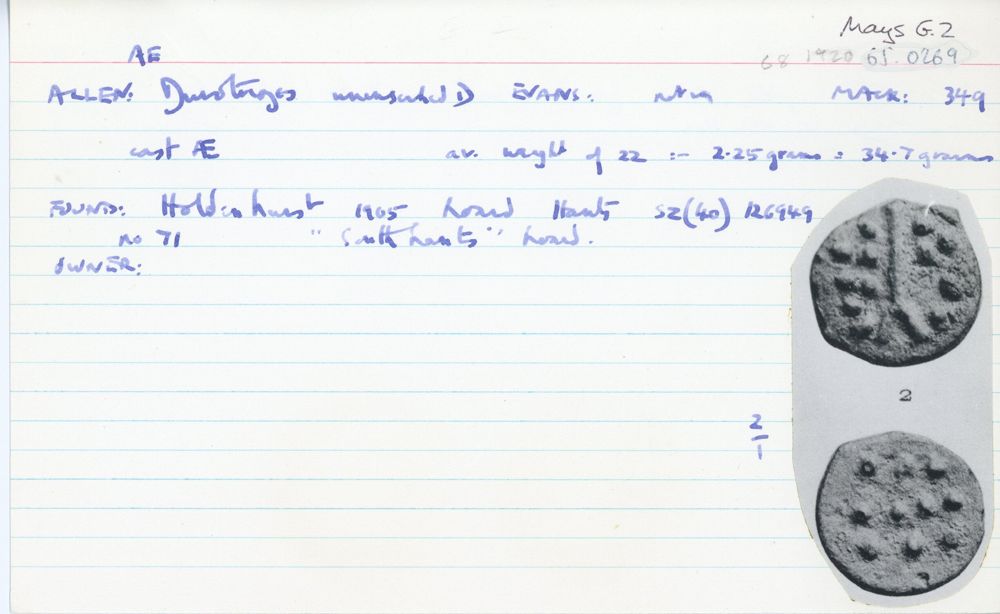 Mays G.2
AE
68 1920 65.0269
ALLEN: Durotriges uninscribed D EVANS: MACK: 349
cast Æ av. weight of 22 :- 2.25 grams = 34.7 grains
FOUND: Holdenhurst 1905 hoard Hants SZ(40) 126949
no 71 "South Hants" hoard.
OWNER:
2
2
1